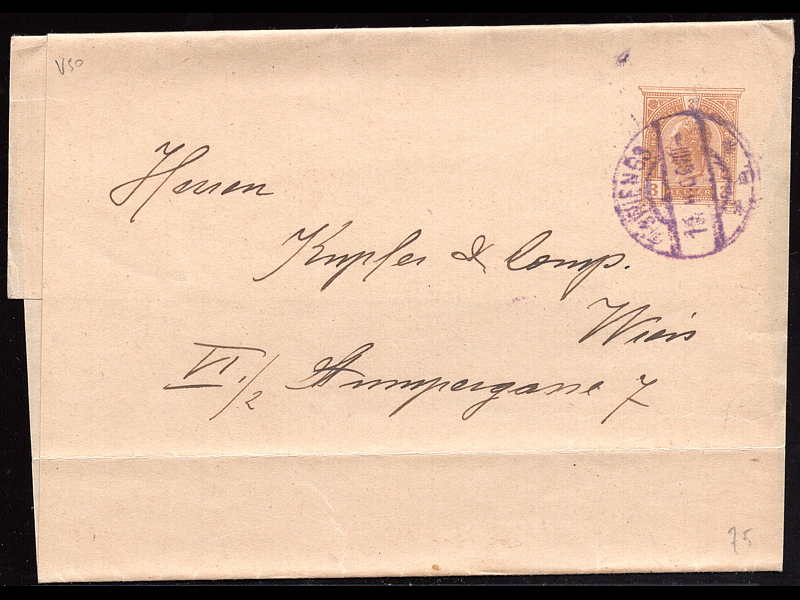 V50
3
3 3
Herren
Kupfer & Comp.
Wien
VI./2 Stumpergasse 7
75